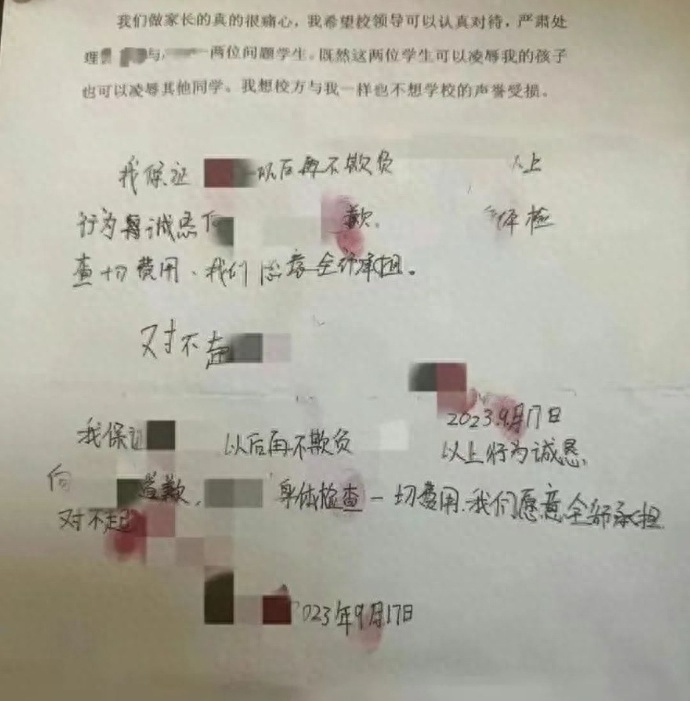 我们做家长的真的很痛心，我希望校领导可以认真对待，严肃处
理 与 两位问题学生。既然这两位学生可以凌辱我的孩子
也可以凌辱其他同学。我想校方与我一样也不想学校的声誉受损。
我保证 以后再不欺负 以上
行为 诚恳 歉。 体检
查 切费用、我们 全部承担。
对不起
2023.9月17日
我保证 以后再不欺负 以上行为诚恳，
向 道歉， 身体检查一切费用，我们愿意全部承担
对不起
023年9月17日